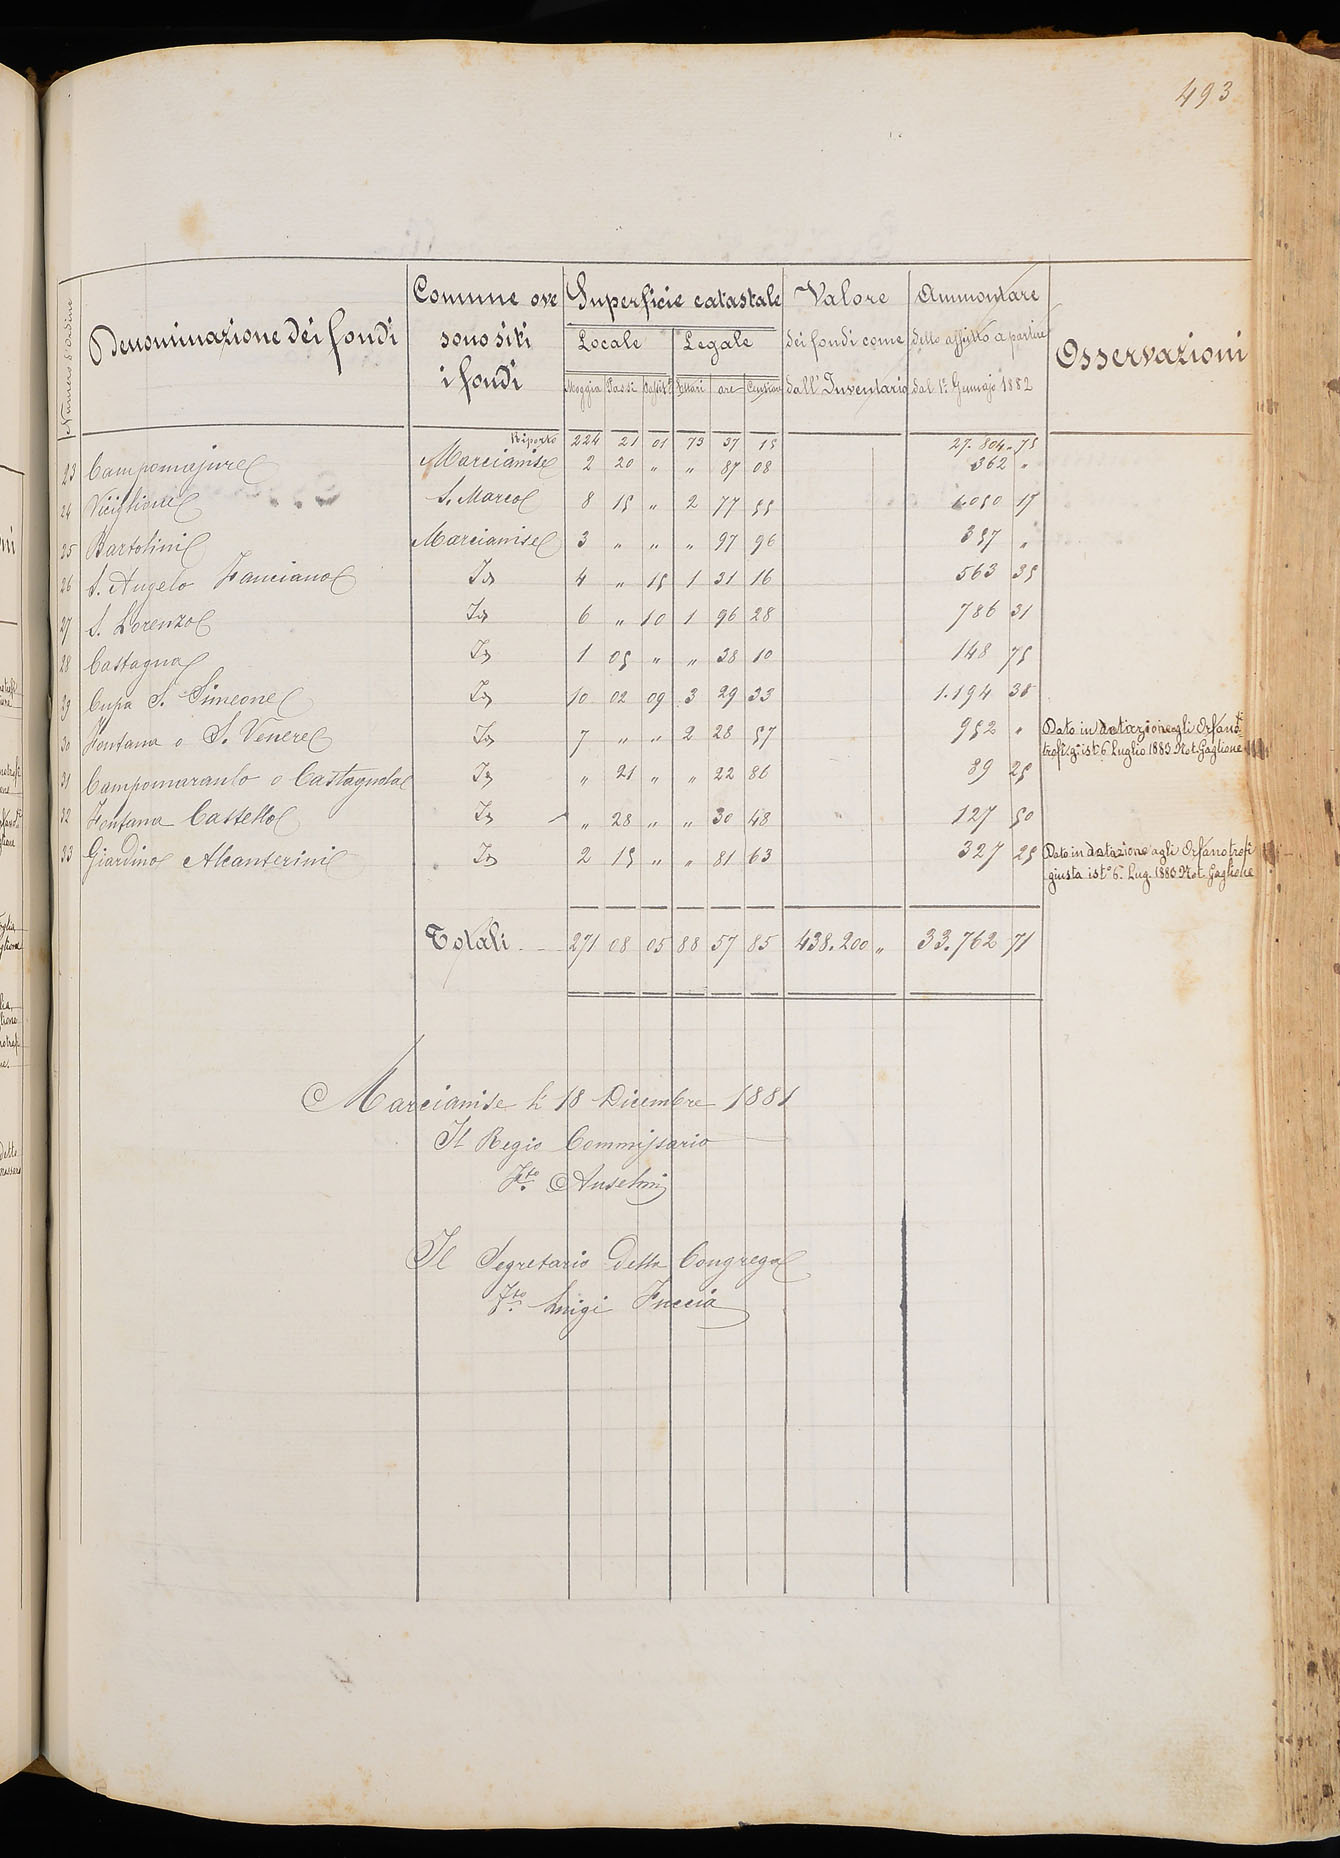 493
Numero d'ordine
Denominazione dei fondi
Comune ove sono siti i fondi
Superficie catastale
Locale Legale
Moggia Passi Passit.i Ettari are Centiare
Valore dei fondi come dall'Inventario
Ammontare dello affitto a partire dal 1.° Gennajo 1882
Osservazioni
Riporto 224 21 01 73 37 15 27.804 75
23 Campomajure Marcianise 2 20 " " 87 08 362 "
24 Viciglione S. Marco 8 15 " 2 77 55 1.050 17
25 Bartolini Marcianise 3 " " " 97 96 357 "
26 S. Angelo Fanciano Id 4 " 15 1 31 16 563 35
27 S. Lorenzo Id 6 " 10 1 96 28 786 31
28 Castagna Id 1 05 " " 38 10 148 75
29 Cupa S. Simeone Id 10 02 09 3 29 33 1.194 38
30 Fontana o S. Venere Id 7 " " 2 28 57 952 " Dato in dotazione agli Orfano=
trofi g.a ist.o 6 Luglio 1883 Not. Gaglione
31 Campomaranlo o Castagnola Id " 21 " " 22 86 89 25
32 Fontana Castello Id " 28 " " 30 48 " 127 50
33 Giardino Alcanterini Id 2 15 " " 81 63 327 25 Dato in dotazione agli Orfanotrofi
giusta ist.o 6. Lug. 1883 Not Gaglione
Totali 271 08 05 88 57 85 438.200 " 33.762 71
Marcianise lì 18 Dicembre 1881
Il Regio Commissario
F.to Anselmi
Il Segretario della Congrega
F.to Luigi Fuccia